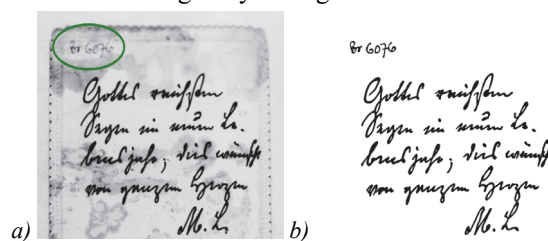 Br 6076
Gottes reichsten
Segen im neuen Le-
bensjahre, dies wünscht
von ganzem Herzen
M. L.
a)
Br 6076
Gottes reichsten
Segen im neuen Le-
bensjahre, dies wünscht
von ganzem Herzen
M. L.
b)